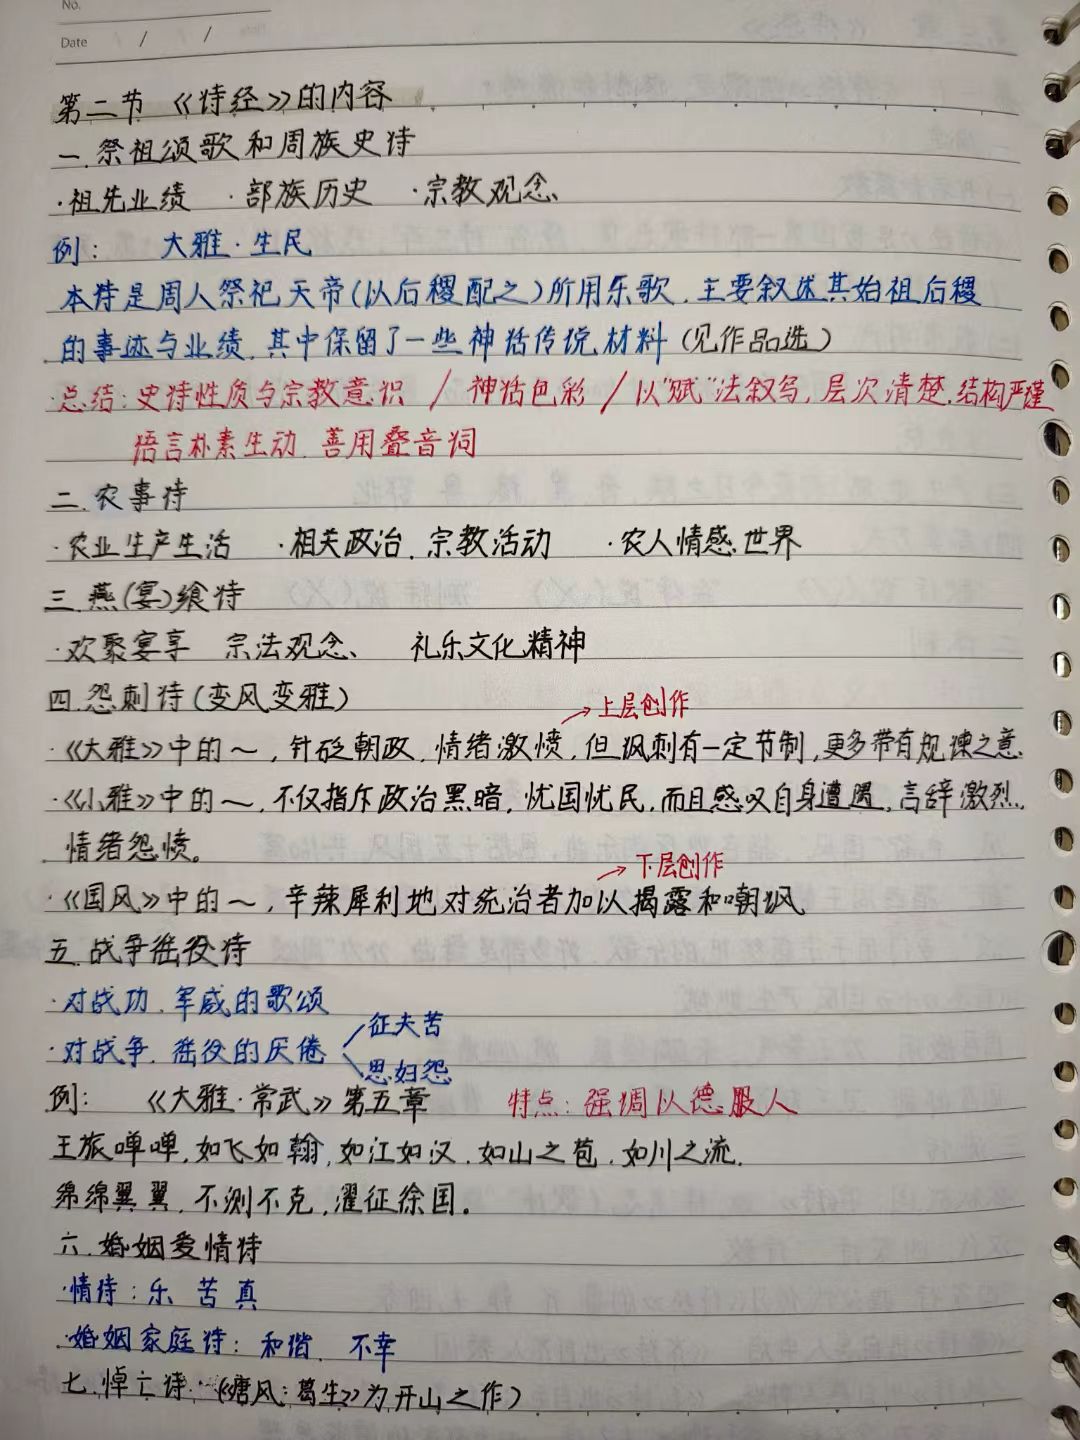 No.
Date / /
第二节 《诗经》的内容
一.祭祖颂歌和周族史诗
·祖先业绩 ·部族历史 ·宗教观念
例: 大雅·生民
本诗是周人祭祀天帝(以后稷配之)所用乐歌.主要叙述其始祖后稷
的事迹与业绩.其中保留了一些神话传说材料(见作品选)
·总结:史诗性质与宗教意识 / 神话色彩 / 以"赋"法叙写,层次清楚.结构严谨
语言朴素生动.善用叠音词
二.农事诗
·农业生产生活 ·相关政治.宗教活动 ·农人情感世界
三.燕(宴)飨诗
·欢聚宴享 宗法观念、 礼乐文化精神
四.怨刺诗(变风变雅)
→上层创作
·《大雅》中的~,针砭朝政,情绪激愤,但讽刺有一定节制,更多带有规谏之意.
·《小雅》中的~,不仅指斥政治黑暗,忧国忧民,而且感叹自身遭遇,言辞激烈.
情绪怨愤。
→下层创作
·《国风》中的~,辛辣犀利地对统治者加以揭露和嘲讽
五.战争徭役诗
·对战功.军威的歌颂
征夫苦
·对战争.徭役的厌倦
思妇怨
例: 《大雅·常武》第五章 特点:强调以德服人
王旅啴啴,如飞如翰,如江如汉.如山之苞.如川之流.
绵绵翼翼.不测不克,濯征徐国。
六.婚姻爱情诗
·情诗:乐 苦 真
·婚姻家庭诗:和谐. 不幸
七.悼亡诗.(《唐风:葛生》为开山之作)